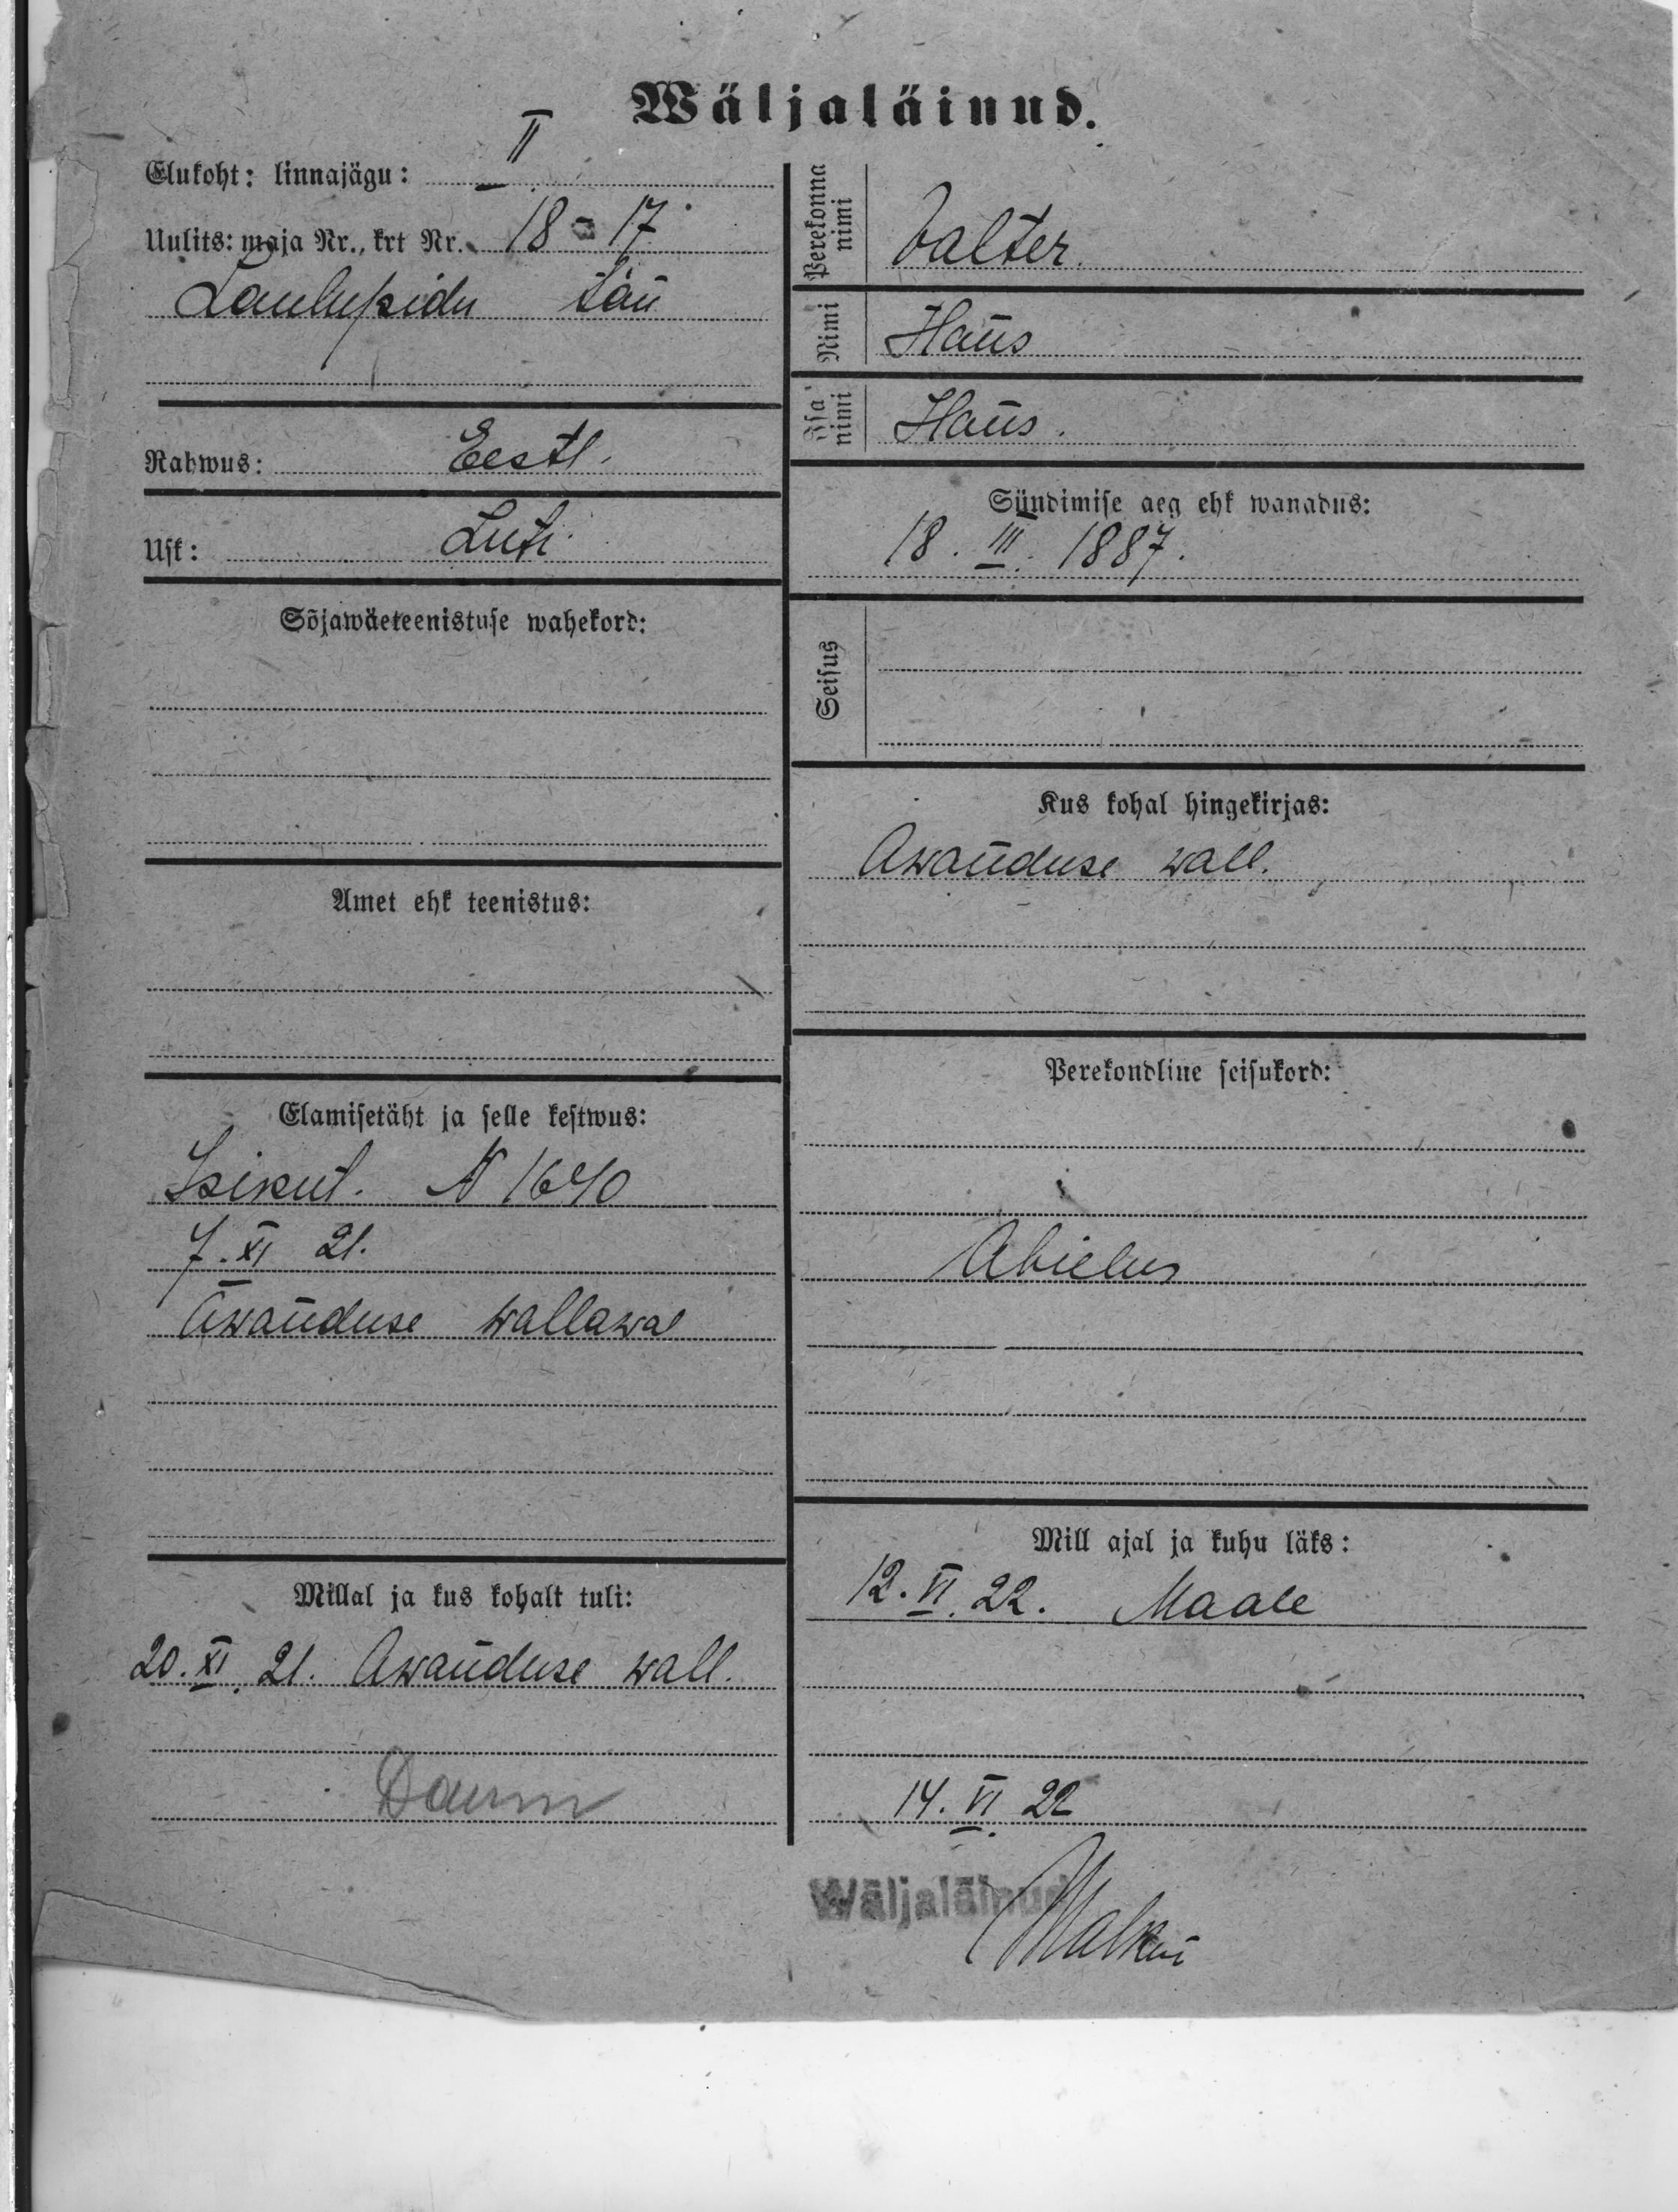 Wäljaläinud.
Elukoht: linnajägu: II
Uulits: maja Nr., krt Nr. 18 - 17
Laulupidu tän
Rahwus: Eestl.
Usk: Luti
Sõjawäeteenistuse wahekord:
Amet ehk teenistus:
Elamisetäht ja selle kestwus:
Isikut. N 1640
7. XI 21.
Awanduse wallawal
Millal ja kus kohalt tuli:
20. XI 21. Awanduse wall.
Perekonna nimi
Valter.
Nimi
Hans
Isa nimi
Hans.
Sündimise aeg ehk wanadus:
18. III. 1887.
Seisus
Kus kohal hingekirjas:
Awanduse wall.
Perekondline seisukord:
Abielus
Mill ajal ja kuhu läks:
12. VI. 22. Maale
14. VI 22
Wäljaläinud